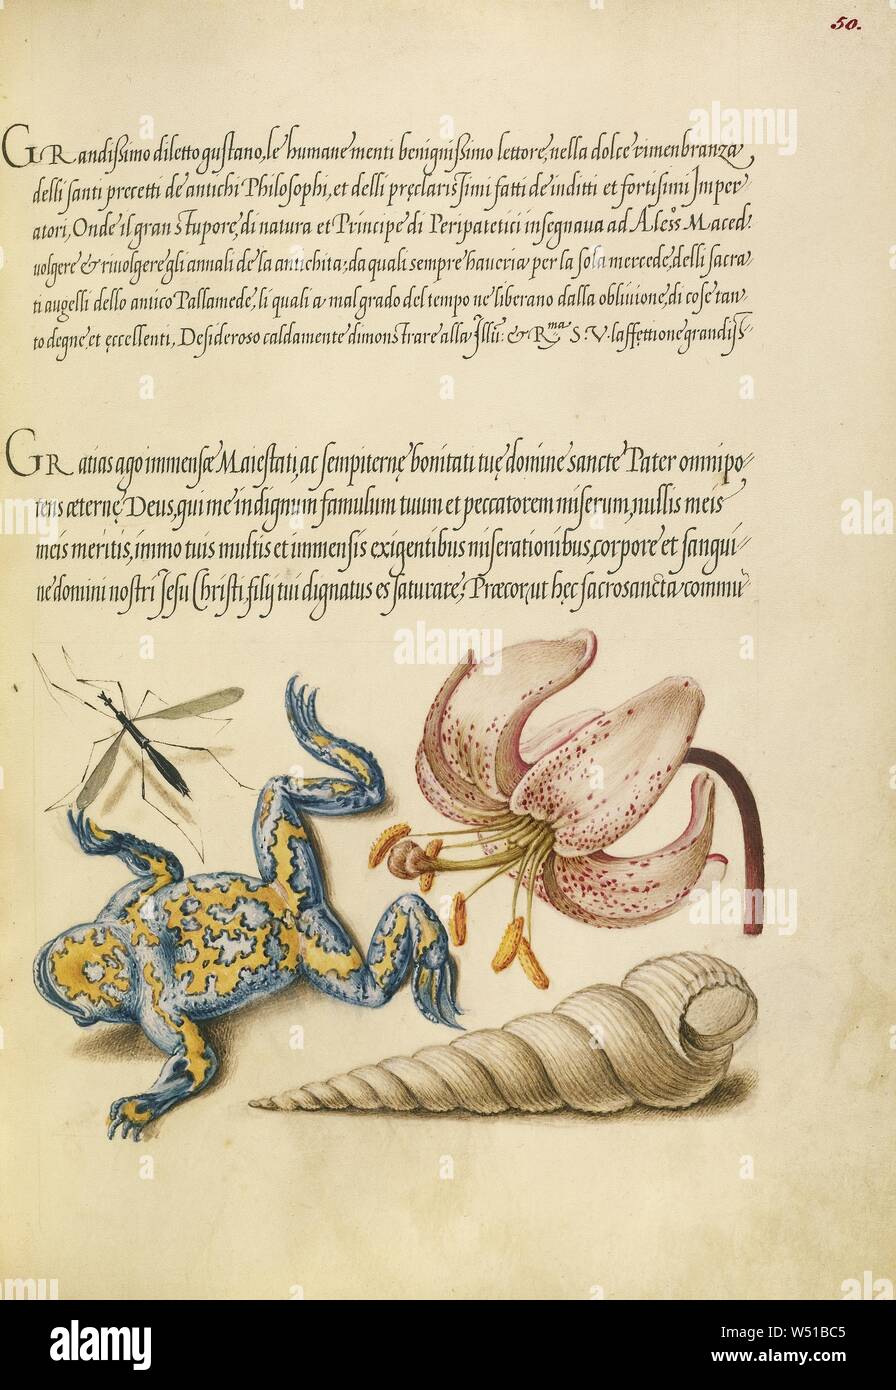 50.
GRandißimo diletto gustano, le humane menti benignißimo lettore, nella dolce rimenbranza
delli santi precetti de antichi Philosophi, et delli pręclarissimi fatti de inditti et fortisimi Imper-
atori, Onde il gran stupore, di natura et Principe di Peripatetici insegnaua ad Aless.º Maced.
uolgere & riuolgere gli annali de la antichita, da quali sempre haueria per la sola mercede, delli sacra-
ti augelli dello antico Pallamede, li quali a mal grado del tempo ne liberano dalla obliuione, di cose tan-
to degne, et eccellenti, Desideroso caldamente dimonstrare alla Illu: & R.ma S. V. l'affettione grandiss-
GRatias ago immensæ Maiestati, ac sempiternę bonitati tuę domine sancte Pater omnipo-
tens æternę Deus, qui me indignum famulum tuum et peccatorem miserum, nullis meis
meis meritis, immo tuis multis et immensis exigentibus miserationibus, corpore et sangui-
ne domini nostri Jesu Christi filij tui dignatus es saturare, Præcor, ut hęc sacrosancta commu-
alamy
Image ID: W51BC5
www.alamy.com